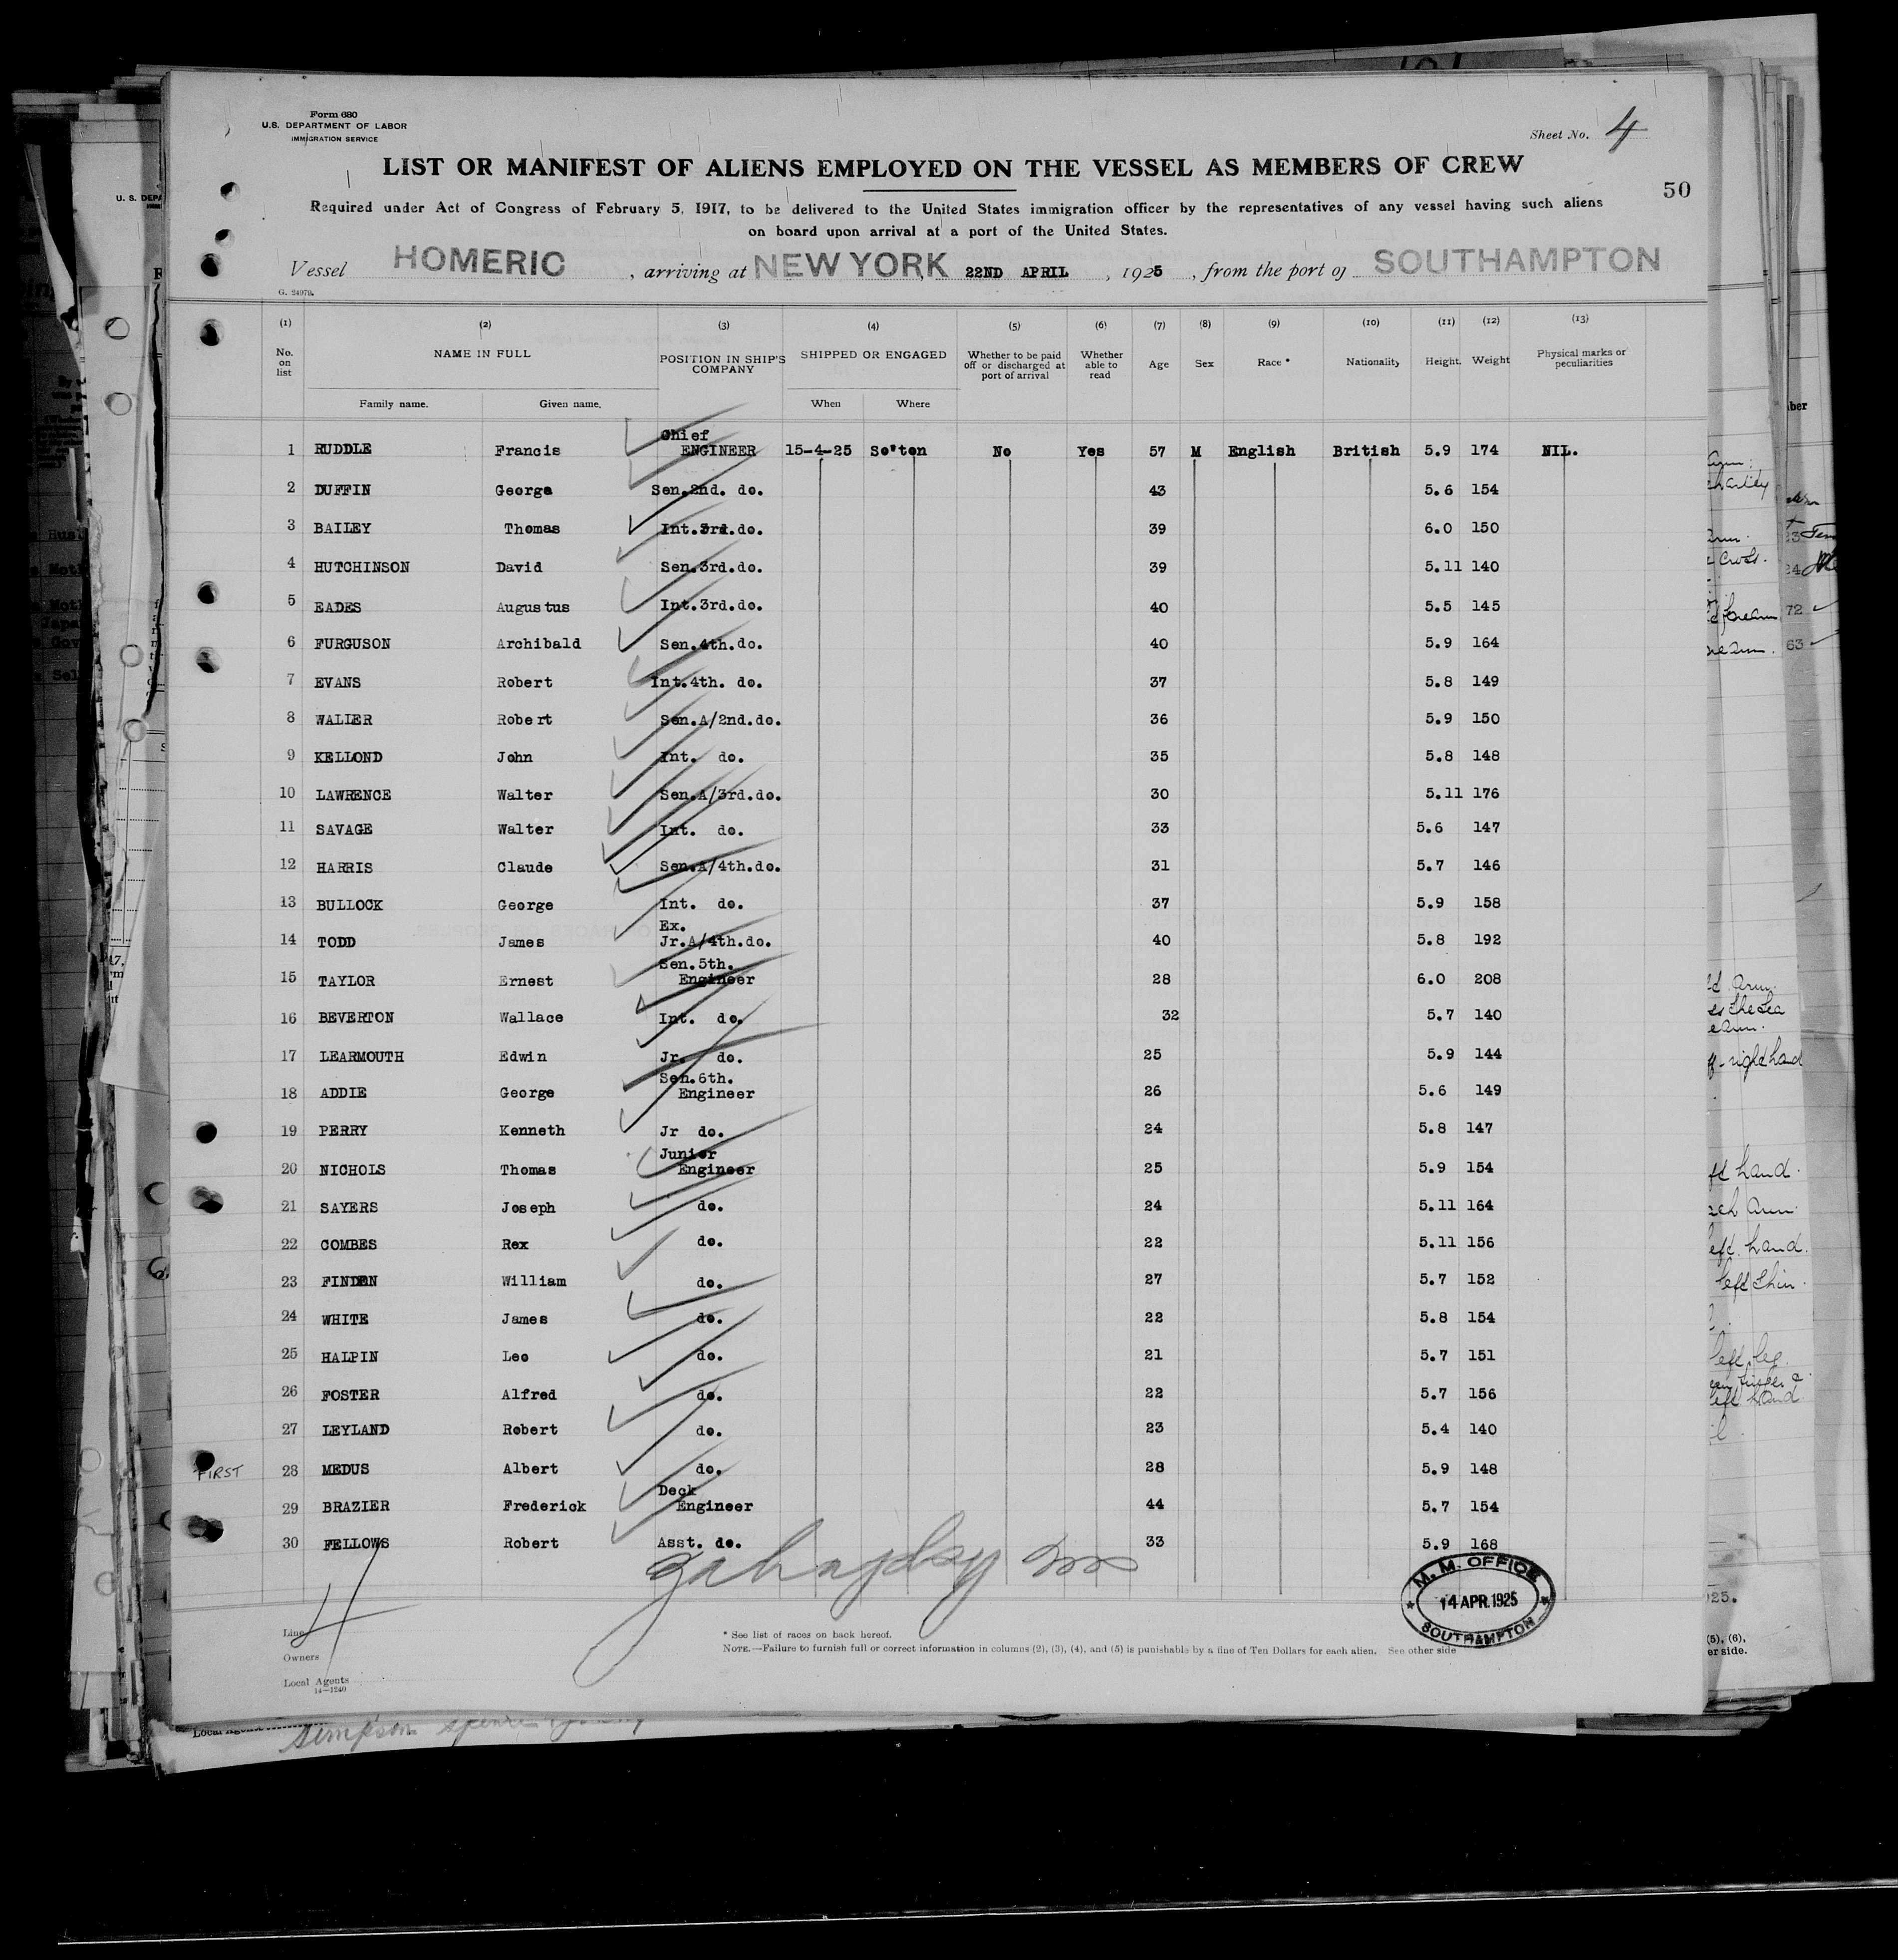 Form 680
U.S. DEPARTMENT OF LABOR
IMMIGRATION SERVICE
Sheet No. 4
LIST OR MANIFEST OF ALIENS EMPLOYED ON THE VESSEL AS MEMBERS OF CREW
50
Required under Act of Congress of February 5, 1917, to be delivered to the United States immigration officer by the representatives of any vessel having such aliens
on board upon arrival at a port of the United States.
Vessel HOMERIC, arriving at NEW YORK, 22ND APRIL, 1925, from the port of SOUTHAMPTON
G. 24079.
(1) (2) (3) (4) (5) (6) (7) (8) (9) (10) (11) (12) (13)
No. on list NAME IN FULL POSITION IN SHIP'S COMPANY SHIPPED OR ENGAGED Whether to be paid off or discharged at port of arrival Whether able to read Age Sex Race * Nationality Height. Weight Physical marks or peculiarities
Family name. Given name. When Where
1 RUDDLE Francis Chief ENGINEER 15-4-25 So'ton No Yes 57 M English British 5.9 174 NIL.
2 DUFFIN George Sen.2nd. do. 43 5.6 154
3 BAILEY Thomas Int.3rd.do. 39 6.0 150
4 HUTCHINSON David Sen.3rd.do. 39 5.11 140
5 EADES Augustus Int.3rd.do. 40 5.5 145
6 FURGUSON Archibald Sen.4th.do. 40 5.9 164
7 EVANS Robert Int.4th. do. 37 5.8 149
8 WALIER Robert Sen.A/2nd.do. 36 5.9 150
9 KELLOND John Int. do. 35 5.8 148
10 LAWRENCE Walter Sen.A/3rd.do. 30 5.11 176
11 SAVAGE Walter Int. do. 33 5.6 147
12 HARRIS Claude Sen.A/4th.do. 31 5.7 146
13 BULLOCK George Int. do. 37 5.9 158
14 TODD James Ex. Jr.A/4th.do. 40 5.8 192
15 TAYLOR Ernest Sen.5th. Engineer 28 6.0 208
16 BEVERTON Wallace Int. do. 32 5.7 140
17 LEARMOUTH Edwin Jr. do. 25 5.9 144
18 ADDIE George Sen.6th. Engineer 26 5.6 149
19 PERRY Kenneth Jr do. 24 5.8 147
20 NICHOLS Thomas Junior Engineer 25 5.9 154
21 SAYERS Joseph do. 24 5.11 164
22 COMBES Rex do. 22 5.11 156
23 FINDEN William do. 27 5.7 152
24 WHITE James do. 22 5.8 154
25 HALPIN Leo do. 21 5.7 151
26 FOSTER Alfred do. 22 5.7 156
27 LEYLAND Robert do. 23 5.4 140
FIRST 28 MEDUS Albert do. 28 5.9 148
29 BRAZIER Frederick Deck Engineer 44 5.7 154
30 FELLOWS Robert Asst. do. 33 5.9 168
M. M. OFFICE
14 APR. 1925
SOUTHAMPTON
4
Line
* See list of races on back hereof.
Owners
NOTE.—Failure to furnish full or correct information in columns (2), (3), (4), and (5) is punishable by a fine of Ten Dollars for each alien. See other side
Local Agents
14—1240